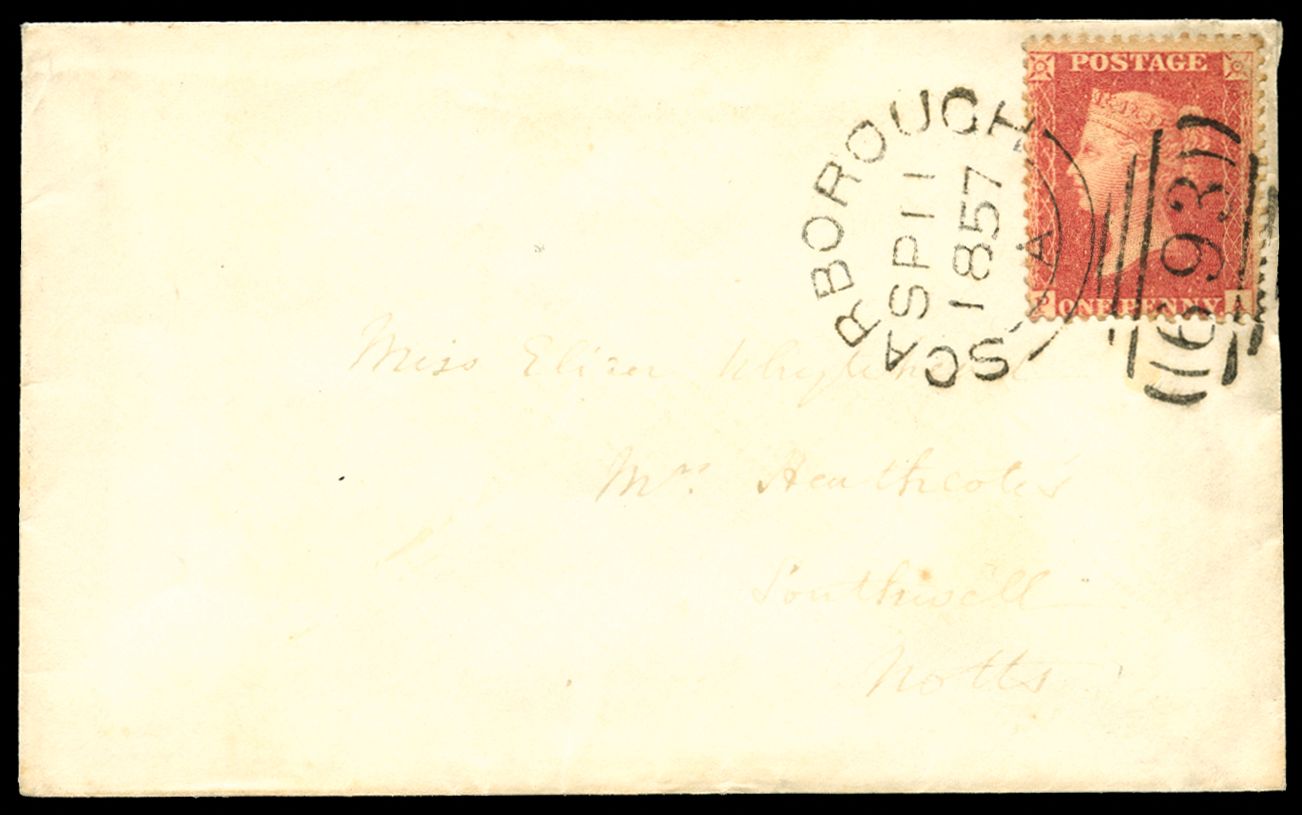 POSTAGE
ONE PENNY
SCARBOROUGH
SP 11
1857
A
693
Miss Eliza Whytehead
Mrs. Heathcote's
Southwell
Notts